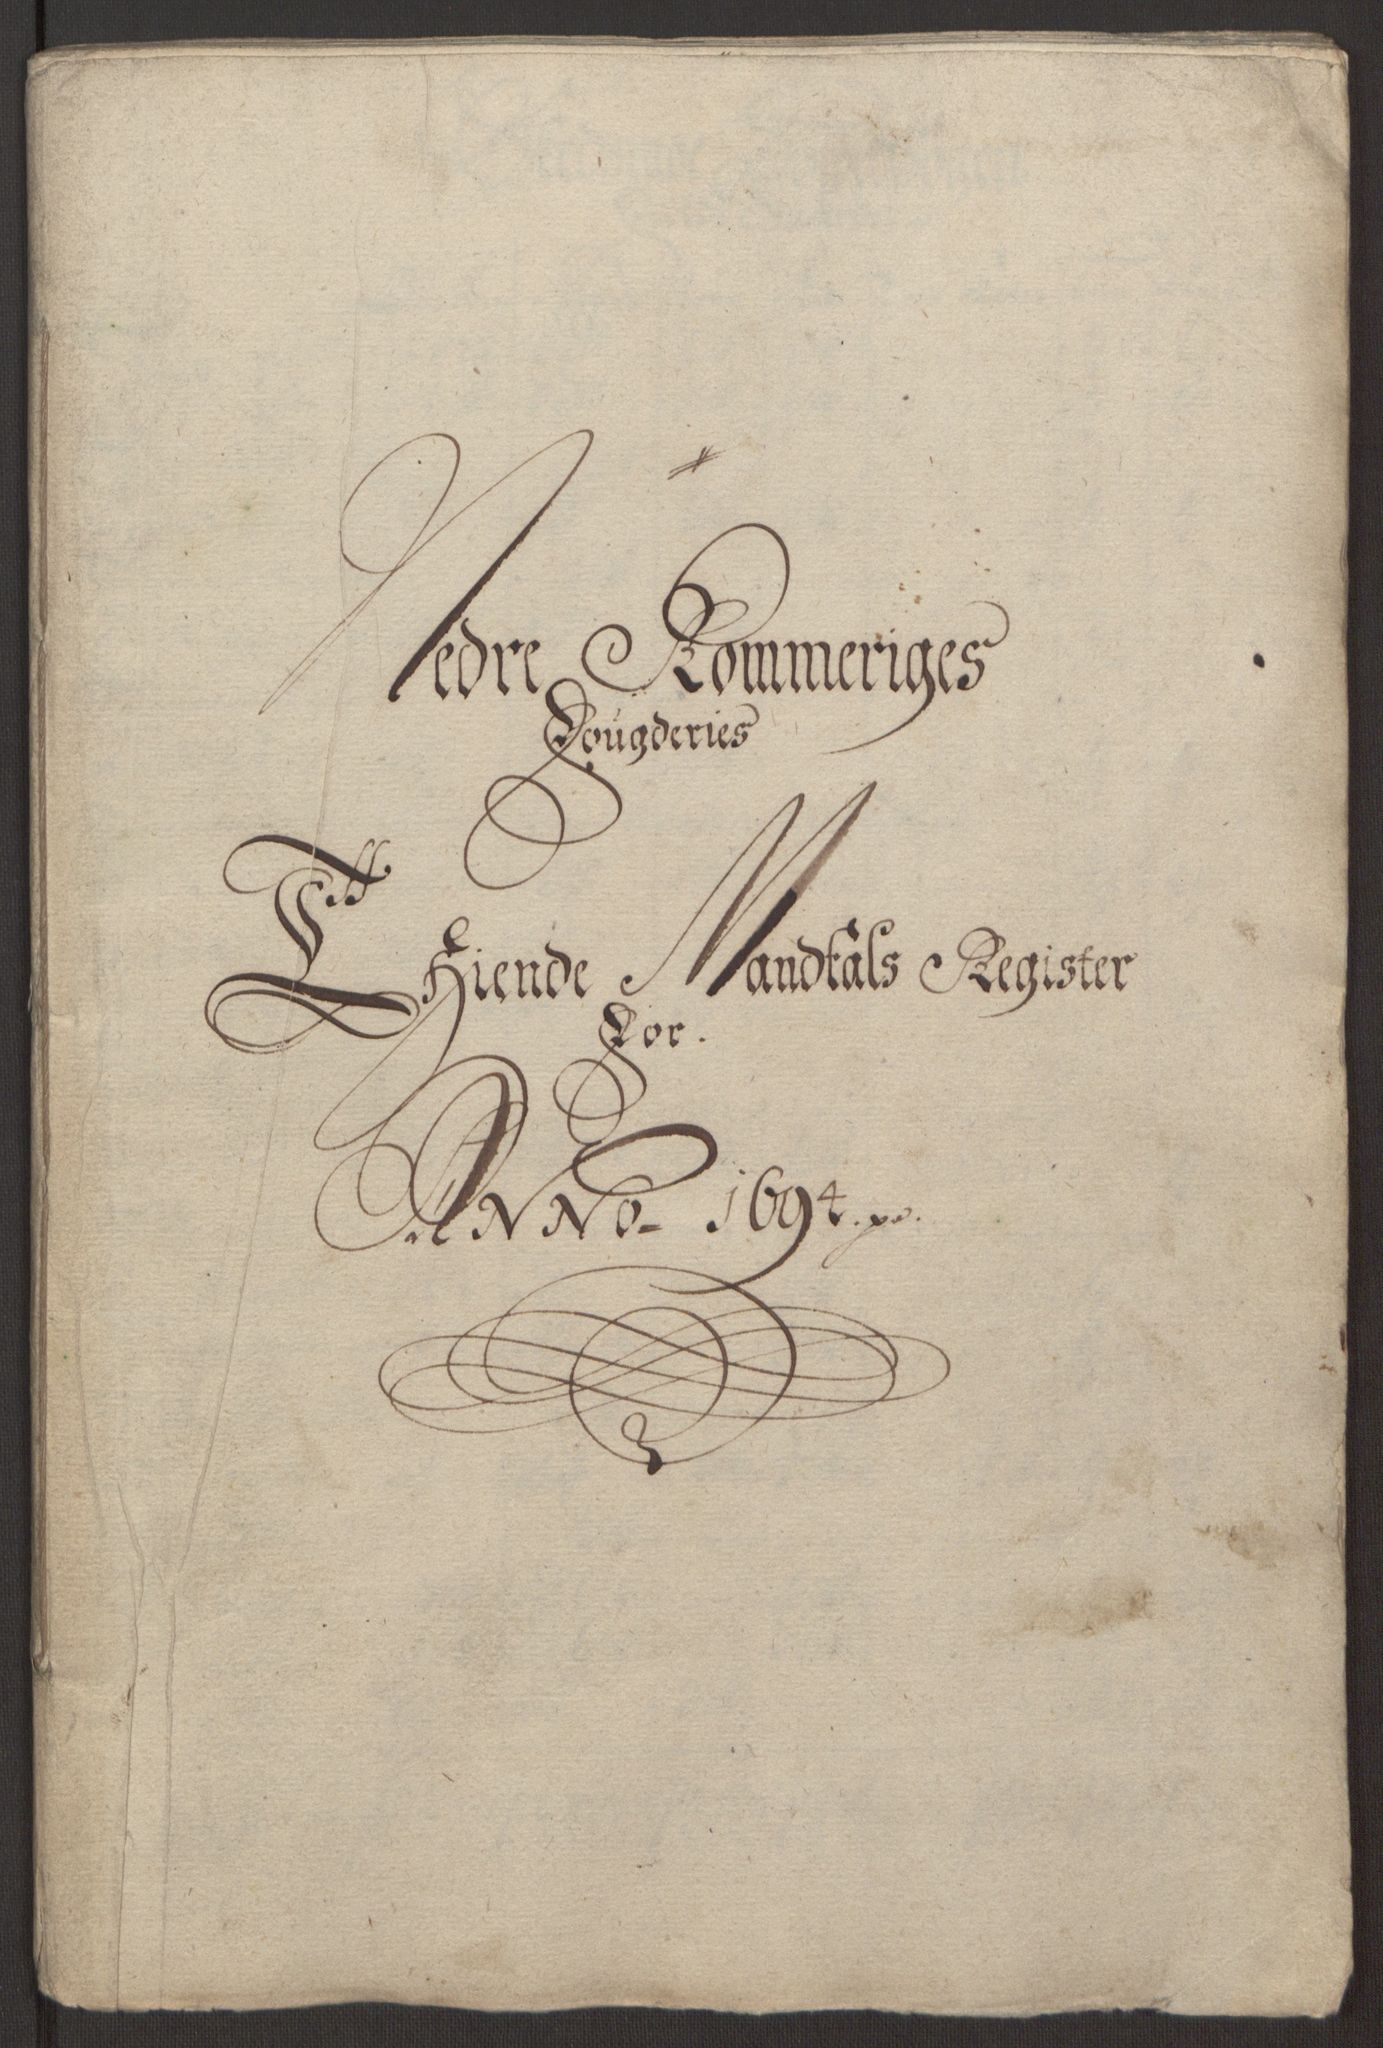 Nedre Rommeriges
Fougderies
Thiende Mandtals Register
For.
ANNO 1694.